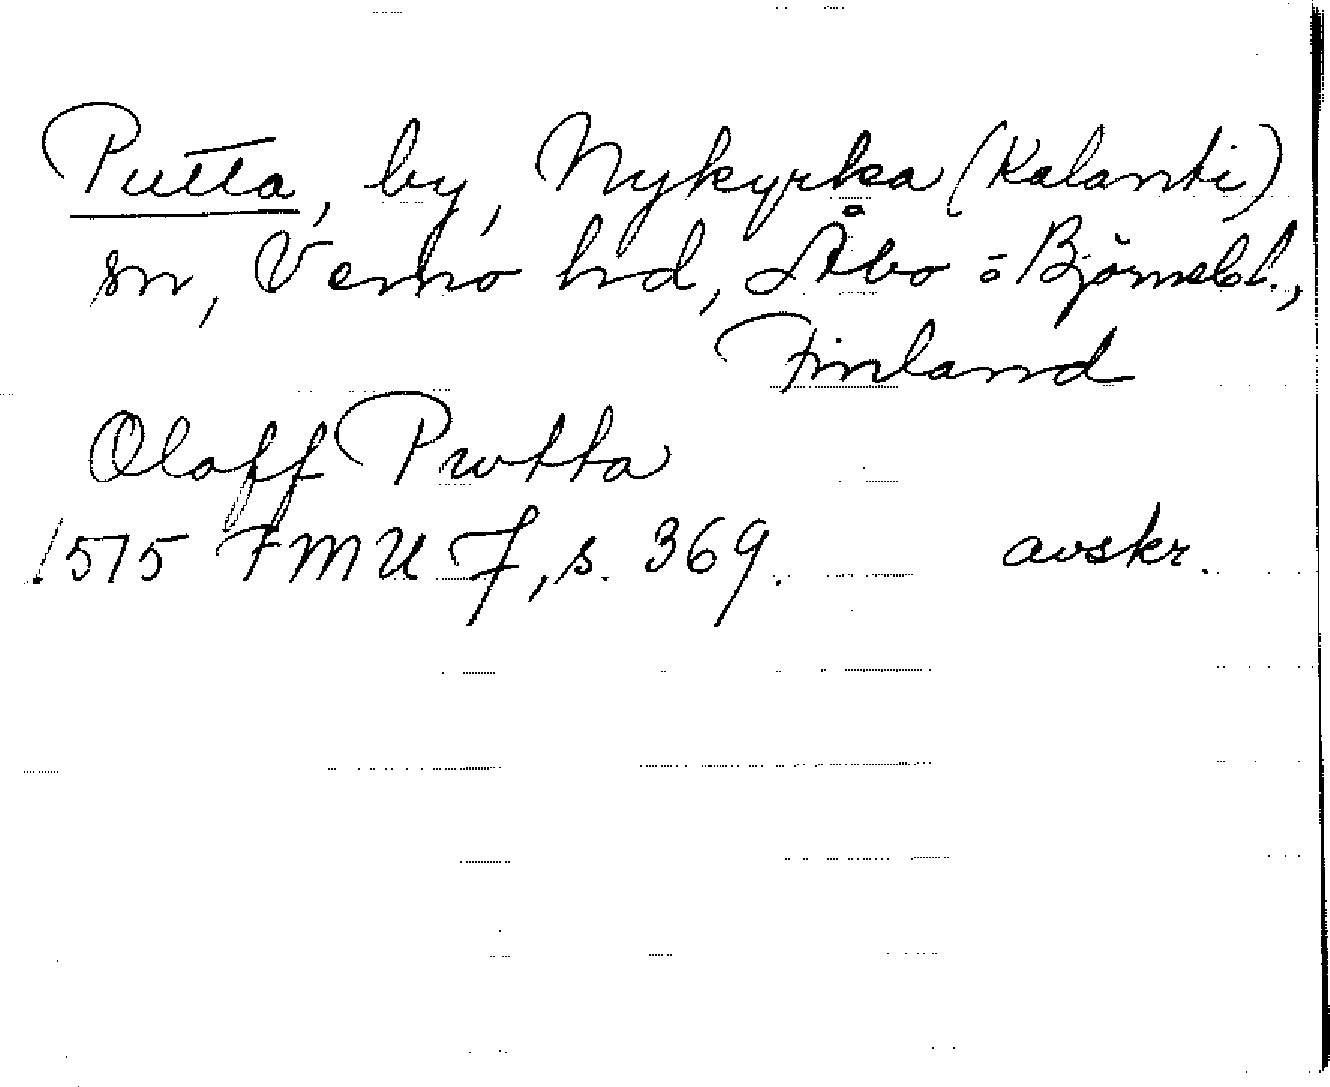 Putta, by, Nykyrka (Kalanti)
sn, Vemo hd, Åbo o Björnebl.,
Finland
Olaff Pwtta
1515 FMU 7, s. 369. avskr.